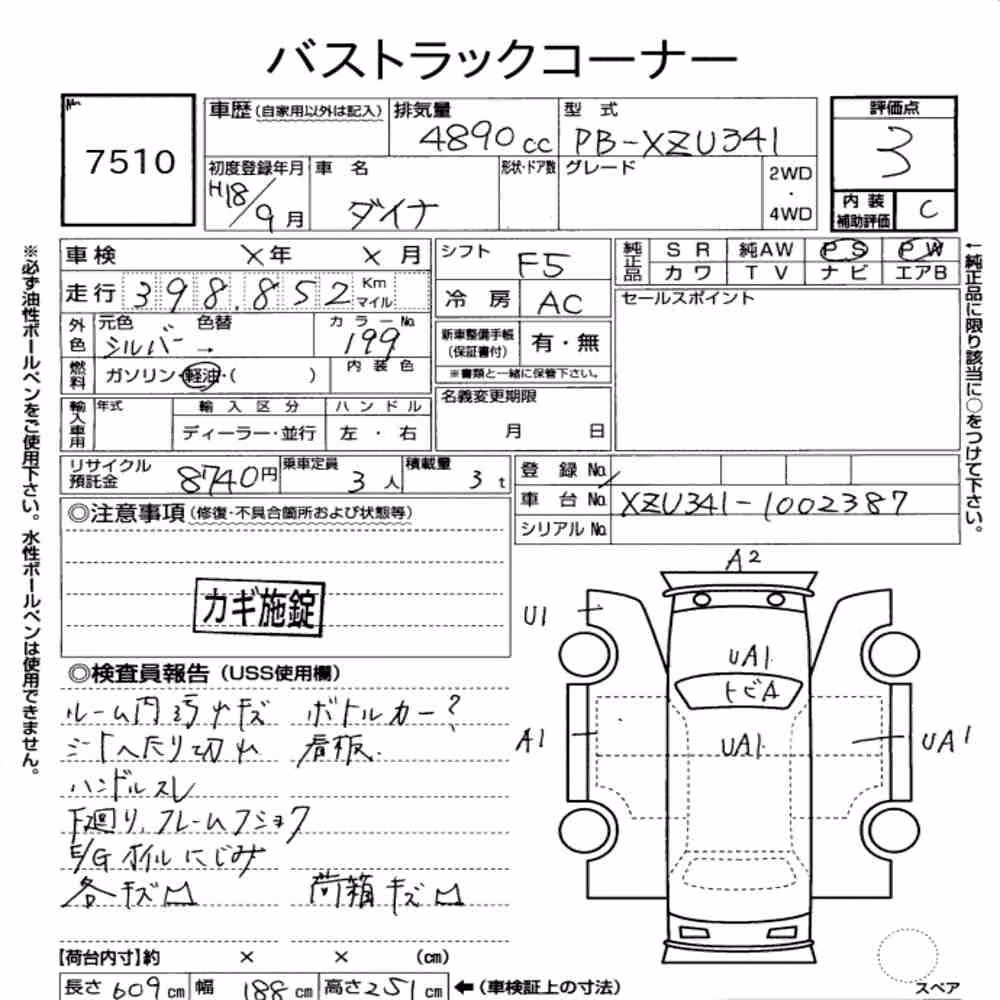 バストラックコーナー
No.
7510
車歴 (自家用以外は記入)
排気量
4890cc
型 式
PB-XZU341
評価点
3
初度登録年月
H18/9月
車 名
ダイナ
形状・ドア数
グレード
2WD
・
4WD
内 装
補助評価
C
※必ず油性ボールペンをご使用下さい。水性ボールペンは使用できません。
車検 ×年 ×月
走行 398.852 Km
マイル
外色
元色 色替
シルバー →
カラーNo.
199
燃料
ガソリン・軽油・( )
内 装 色
輸入車用
年式
輸 入 区 分
ディーラー・並行
ハ ン ド ル
左 ・ 右
シフト
F5
冷 房
AC
新車整備手帳
(保証書付)
有・無
※書類と一緒に保管下さい。
名義変更期限
月 日
純正品
S R 純AW P S P W
カ ワ T V ナ ビ エアB
セールスポイント
←純正品に限り該当に○をつけて下さい。
リサイクル
預託金
8740円
乗車定員
3人
積載量
3t
登 録 No.
車 台 No.
XZU341-1002387
シリアル No.
◎注意事項 (修復・不具合箇所および状態等)
カギ施錠
◎検査員報告 (USS使用欄)
ルーム内汚れキズ ボトルカー?
シートへたり切れ 看板.
ハンドルスレ
下廻り,フレームフショク
E/Gオイルにじみ
各キズ凹 荷箱キズ凹
A2
U1
UA1
トビA
A1
UA1
UA1
【荷台内寸】約 × × (cm)
長さ 609 cm 幅 188 cm 高さ 251 cm ←(車検証上の寸法)
スペア